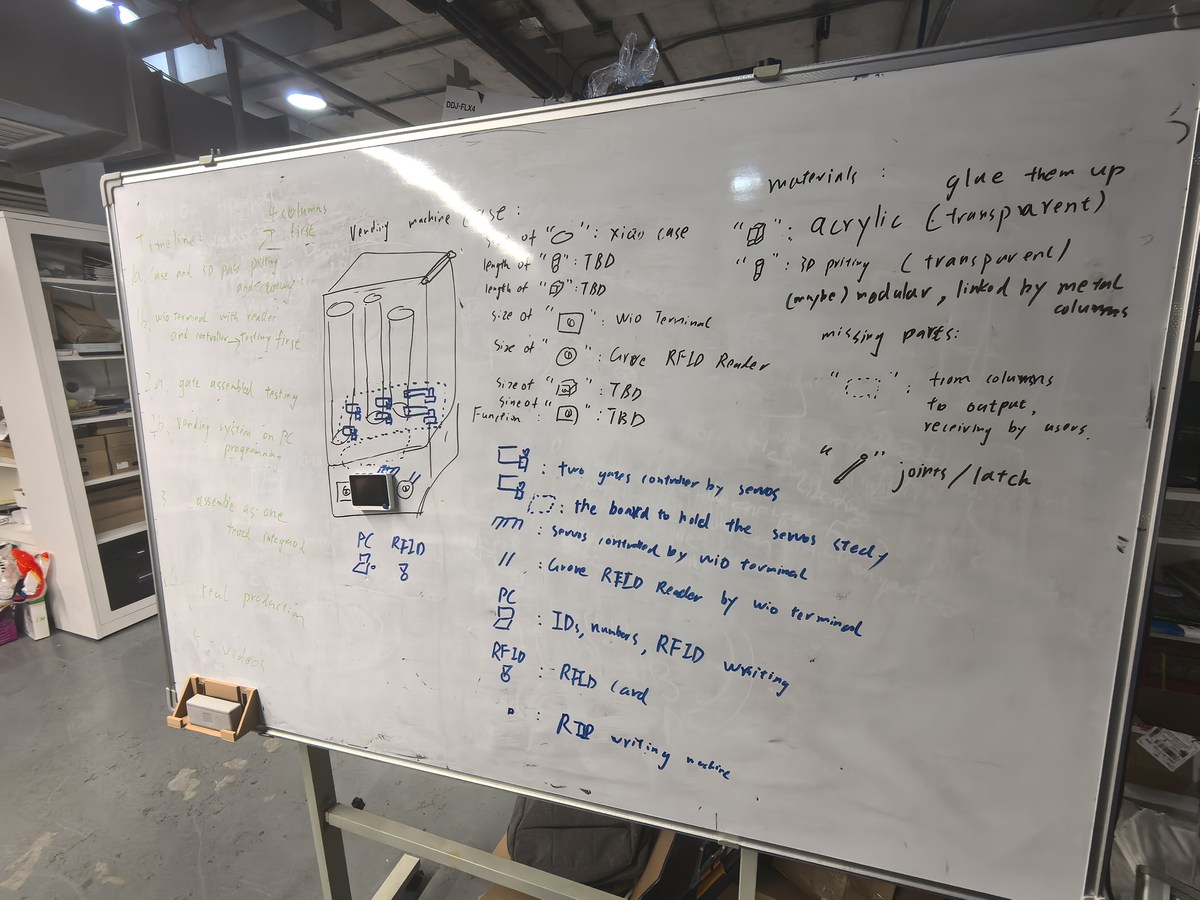 DDJ-FLX4
4 columns
first
Timeline:
a. case and 3D part priting
and testing
wio terminal with reader
and controller → testing first
2 a. gate assembled testing
b. vending system on PC
programming
3 assemble as one
integrad
real production
videos
Vending machine case:
size of " ": xiao case
length of " ": TBD
length of " ": TBD
size of " ": Wio Terminal
size of " ": Grove RFID Reader
size of " ": TBD
size of
Function " ": TBD
PC RFID
: two gates controller by servos
: the board to hold the servos
: servos controlled by wio terminal
// : Grove RFID Reader by wio terminal
PC
: IDs, numbers, RFID writing
RFID
: RFID Card
: writing machine
materials : glue them up
" ": acrylic (transparent)
" ": 3D priting (transparent)
(maybe) modular, linked by metal
columns
missing parts:
" ": from columns
to output,
receiving by users.
" " joints/latch